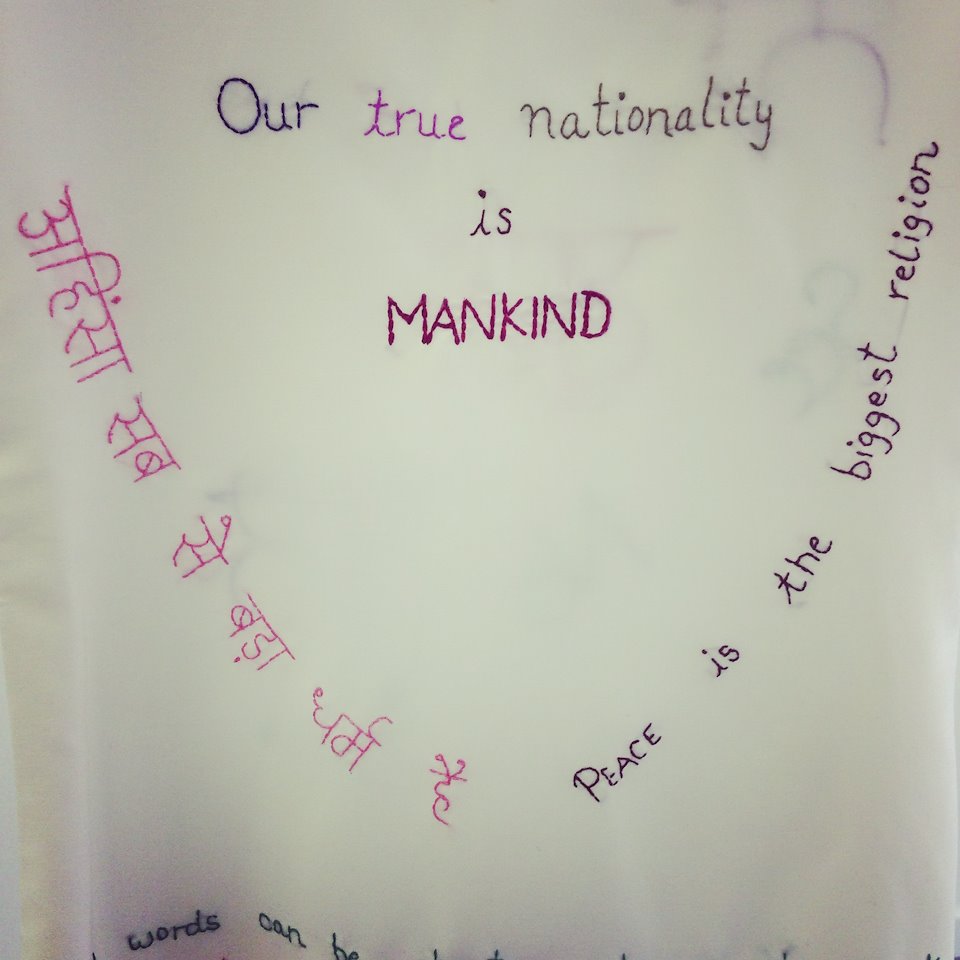 Our true nationality
is
MANKIND
अहिंसा सब से बड़ा धर्म है
PEACE is the biggest religion
words can be